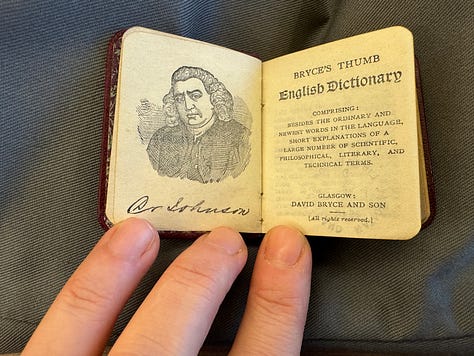 Dr Johnson
BRYCE'S THUMB
English Dictionary
COMPRISING:
BESIDES THE ORDINARY AND
NEWEST WORDS IN THE LANGUAGE,
SHORT EXPLANATIONS OF A
LARGE NUMBER OF SCIENTIFIC,
PHILOSOPHICAL, LITERARY, AND
TECHNICAL TERMS.
GLASGOW:
DAVID BRYCE AND SON
[All rights reserved.]